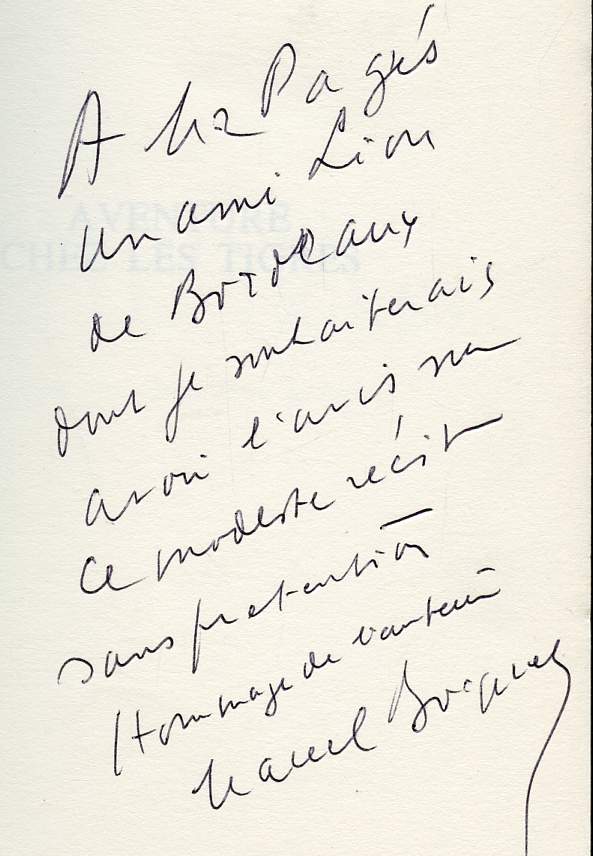 A Mr Pagès
un ami Lion
de Bordeaux
dont je souhaiterais
avoir l'avis sur
ce modeste récit
sans prétention
Hommage de l'auteur
Marcel
AVENTURE
CHEZ LES TIGRES